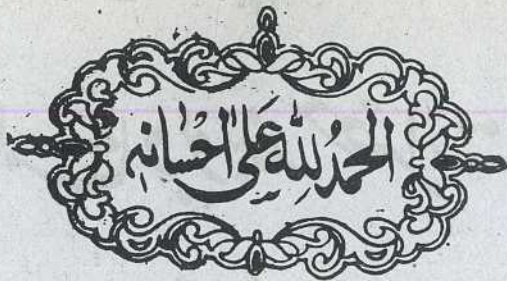 الحمدُ لِلّٰهِ عَلىٰ اِحْسَانِهٖ